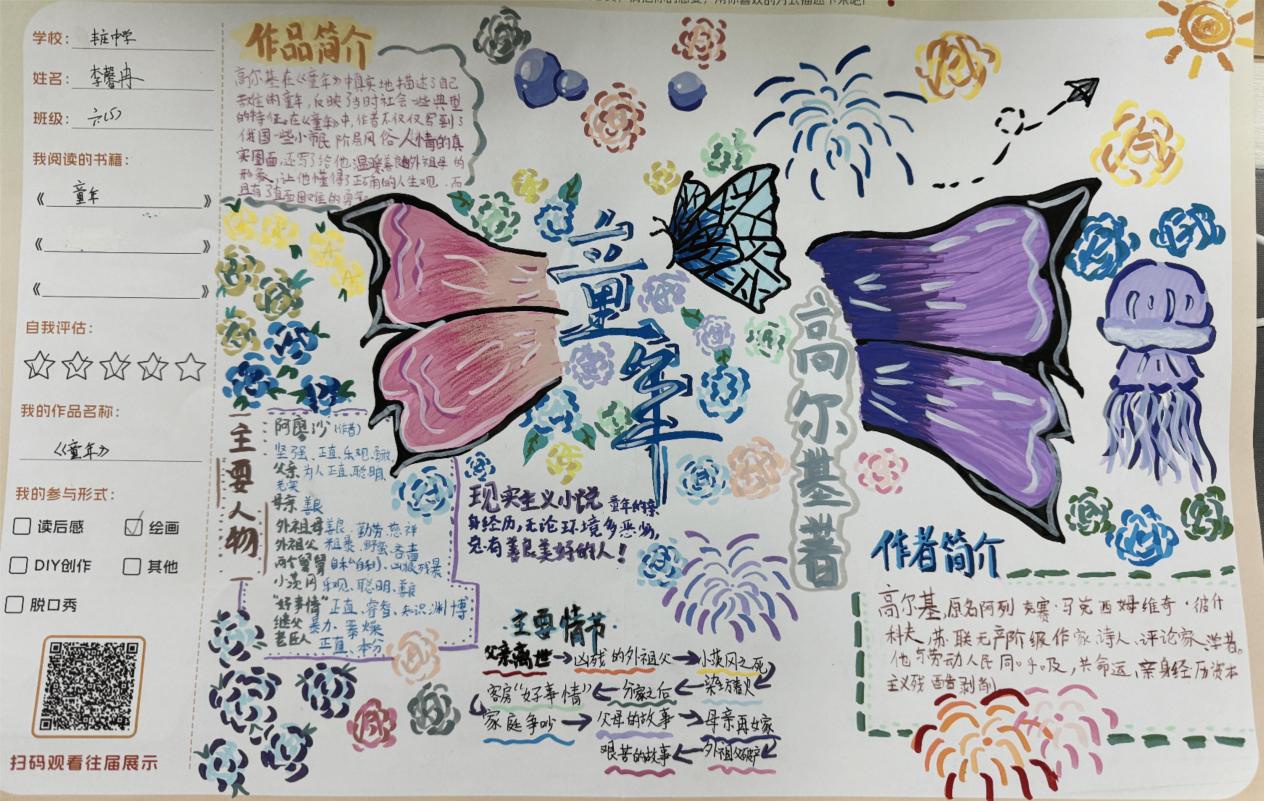 学校：丰庄中学
姓名：李馨冉
班级：六(5)
我阅读的书籍：
《童年》
《 》
《 》
自我评估：
我的作品名称：
《童年》
我的参与形式：
读后感
绘画
DIY创作
其他
脱口秀
扫码观看往届展示
作品简介
高尔基在《童年》中真实地描述了自己
苦难的童年，反映了当时社会一些典型
的特征，在《童年》中，作者不仅仅写到了
俄国一些小市民阶层风俗人情的真
实图画，还写了给他温暖善良的外祖母的
形象，让他懂得了正确的人生观，而
且有了直面困难的
童年
高尔基著
主要人物
阿廖沙(作者)
坚强、正直、乐观、勇敢
父亲 为人正直、聪明、
母亲 善良
外祖母 善良、勤劳、慈祥
外祖父 粗暴、野蛮、吝啬
两个舅舅 自私(自利)、凶狠残暴
小茨冈 乐观、聪明、善良
"好事情" 正直、睿智、知识渊博
继父 暴力、暴燥
老匠人 正直、本分
现实主义小说 童年的亲
身经历，无论环境多恶劣，
总有善良美好的人！
主要情节
父亲离世→凶残的外祖父→小茨冈之死
客房"好事情"←分家之后←染坊着火
家庭争吵→父母的故事→母亲再嫁
艰苦的故事←外祖父破产
作者简介
高尔基，原名阿列克赛·马克西姆维奇·彼什
科夫，苏联无产阶级作家诗人、评论家、学者。
他与劳动人民同呼吸，共命运，亲身经历资本
主义残酷剥削